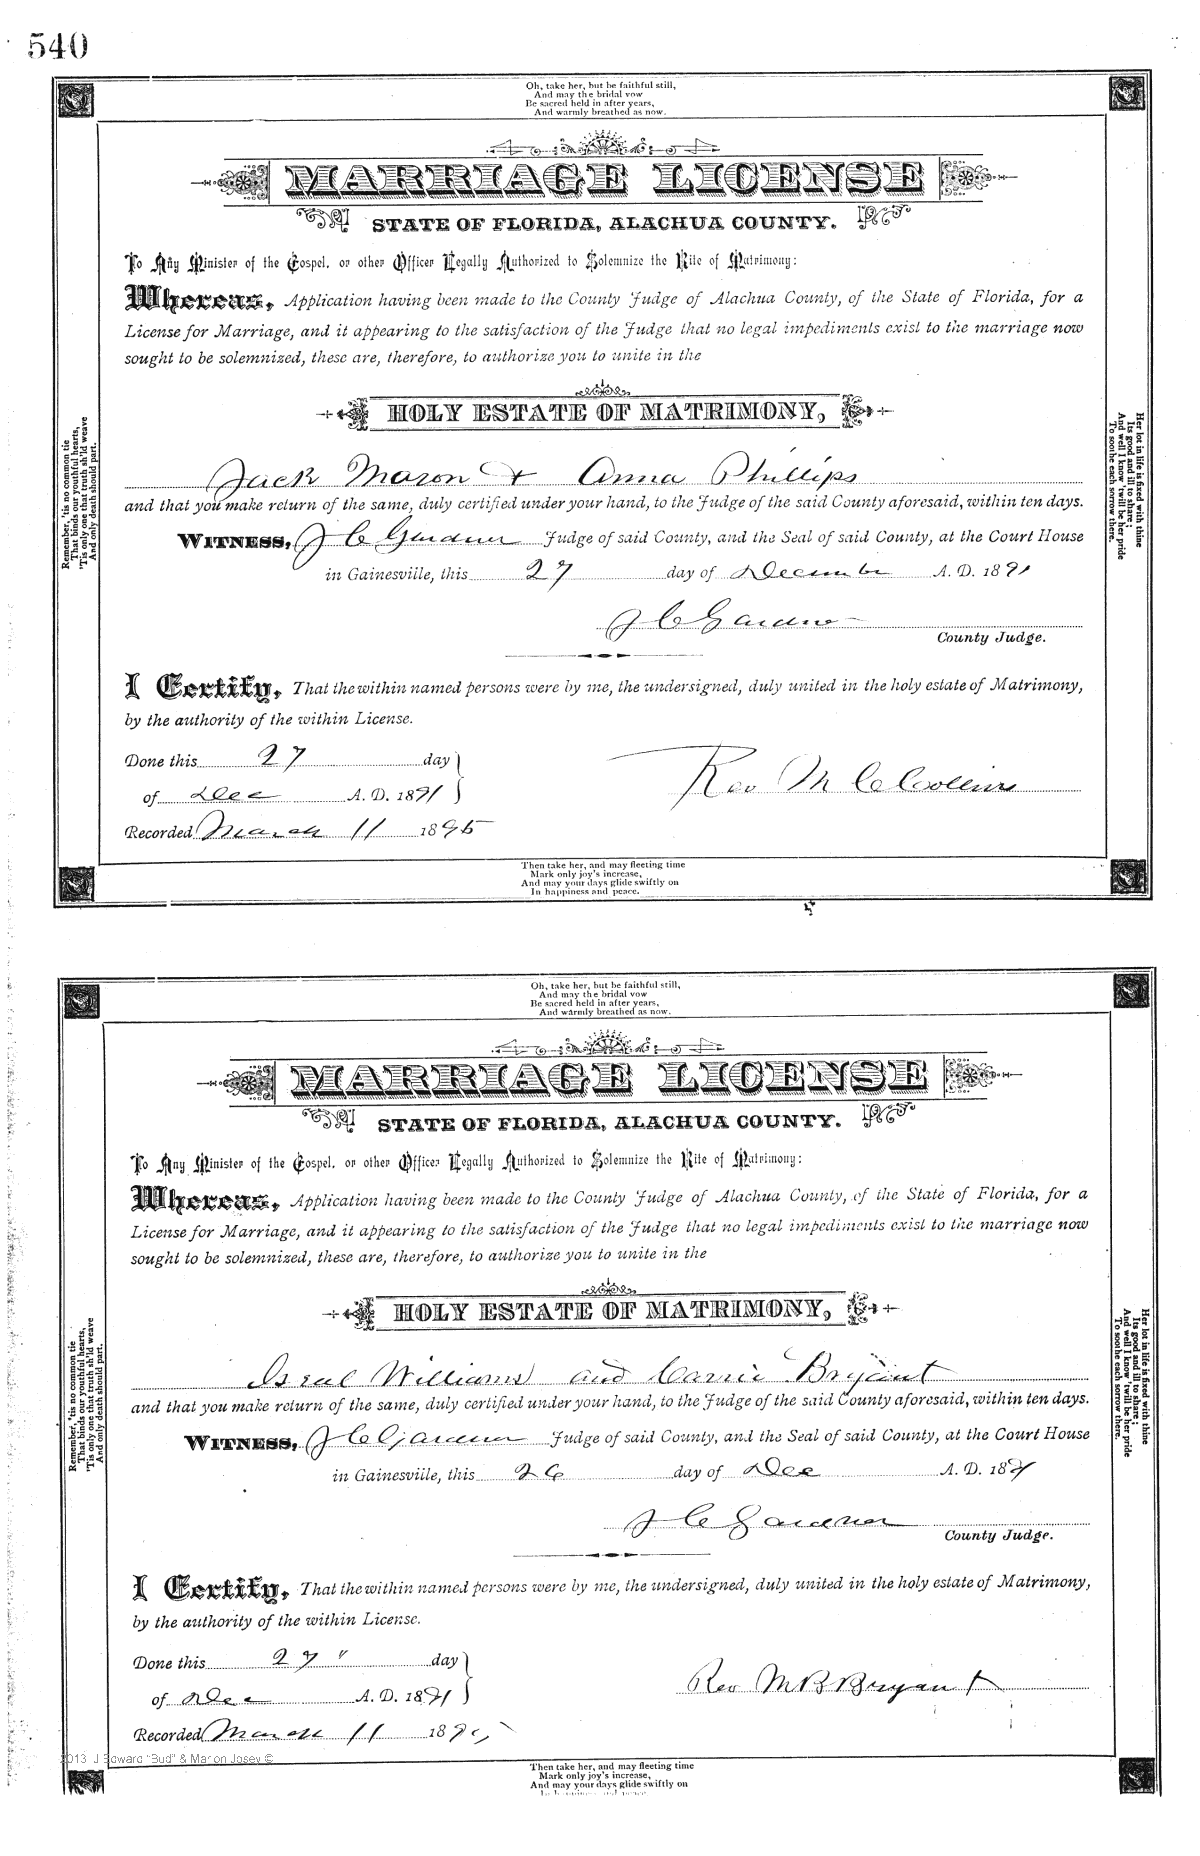 540
Oh, take her, but be faithful still,
And may the bridal vow
Be sacred held in after years,
And warmly breathed as now.
MARRIAGE LICENSE
STATE OF FLORIDA, ALACHUA COUNTY.
To Any Minister of the Gospel, or other Officer Legally Authorized to Solemnize the Rite of Matrimony:
Whereas, Application having been made to the County Judge of Alachua County, of the State of Florida, for a
License for Marriage, and it appearing to the satisfaction of the Judge that no legal impediments exist to the marriage now
sought to be solemnized, these are, therefore, to authorize you to unite in the
HOLY ESTATE OF MATRIMONY,
Jack Mason & Anna Phillips
and that you make return of the same, duly certified under your hand, to the Judge of the said County aforesaid, within ten days.
WITNESS, J C Gardner Judge of said County, and the Seal of said County, at the Court House
in Gainesville, this 27 day of December A. D. 1891
J C Gardner
County Judge.
I Certify, That the within named persons were by me, the undersigned, duly united in the holy estate of Matrimony,
by the authority of the within License.
Done this 27 day
of Dec A. D. 1891
Rev M C Collins
Recorded March 11 1895
Then take her, and may fleeting time
Mark only joy's increase,
And may your days glide swiftly on
In happiness and peace.
Remember, 'tis no common tie
That binds our youthful hearts,
'Tis only one that truth sh'ld weave
And only death should part.
Her lot in life is fixed with thine
Its good and ill to share;
And well I know 'twill be her pride
To soothe each sorrow there.
Oh, take her, but be faithful still,
And may the bridal vow
Be sacred held in after years,
And warmly breathed as now.
MARRIAGE LICENSE
STATE OF FLORIDA, ALACHUA COUNTY.
To Any Minister of the Gospel, or other Officer Legally Authorized to Solemnize the Rite of Matrimony:
Whereas, Application having been made to the County Judge of Alachua County, of the State of Florida, for a
License for Marriage, and it appearing to the satisfaction of the Judge that no legal impediments exist to the marriage now
sought to be solemnized, these are, therefore, to authorize you to unite in the
HOLY ESTATE OF MATRIMONY,
Isreal Williams and Carrie Bryant
and that you make return of the same, duly certified under your hand, to the Judge of the said County aforesaid, within ten days.
WITNESS, J C Gardner Judge of said County, and the Seal of said County, at the Court House
in Gainesville, this 26 day of Dec A. D. 1891
J C Gardner
County Judge.
I Certify, That the within named persons were by me, the undersigned, duly united in the holy estate of Matrimony,
by the authority of the within License.
Done this 27 " day
of Dec A. D. 1891
Rev M B Bryant
Recorded March 11 1895
2013 J Edward "Bud" & Marion Josey ©
Then take her, and may fleeting time
Mark only joy's increase,
And may your days glide swiftly on
In happiness and peace.
Remember, 'tis no common tie
That binds our youthful hearts,
'Tis only one that truth sh'ld weave
And only death should part.
Her lot in life is fixed with thine
Its good and ill to share;
And well I know 'twill be her pride
To soothe each sorrow there.